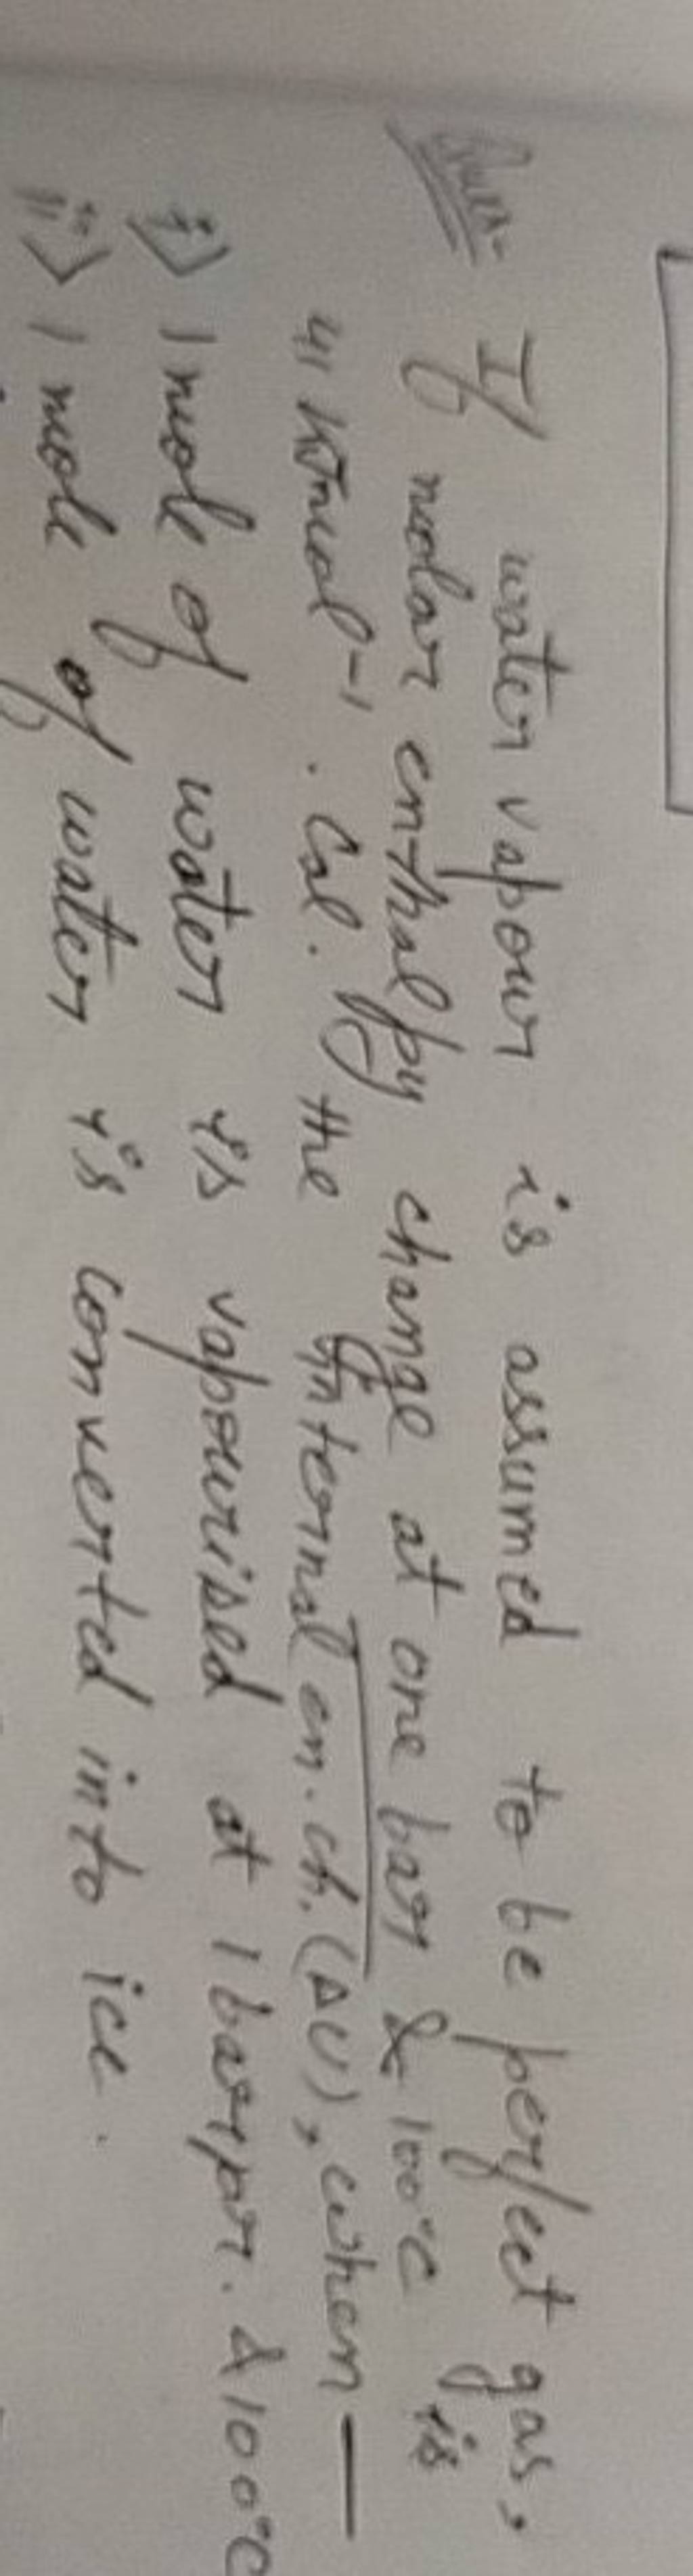 If water vapour is assumed to be perfect gas,
molar enthalpy change at one bar & 100°C is
41 kJmol⁻¹. Cal. the internal en. ch. (ΔU), when —
i> 1 mole of water is vapourised at 1 bar pr. & 100°C
ii> 1 mole of water is converted into ice.